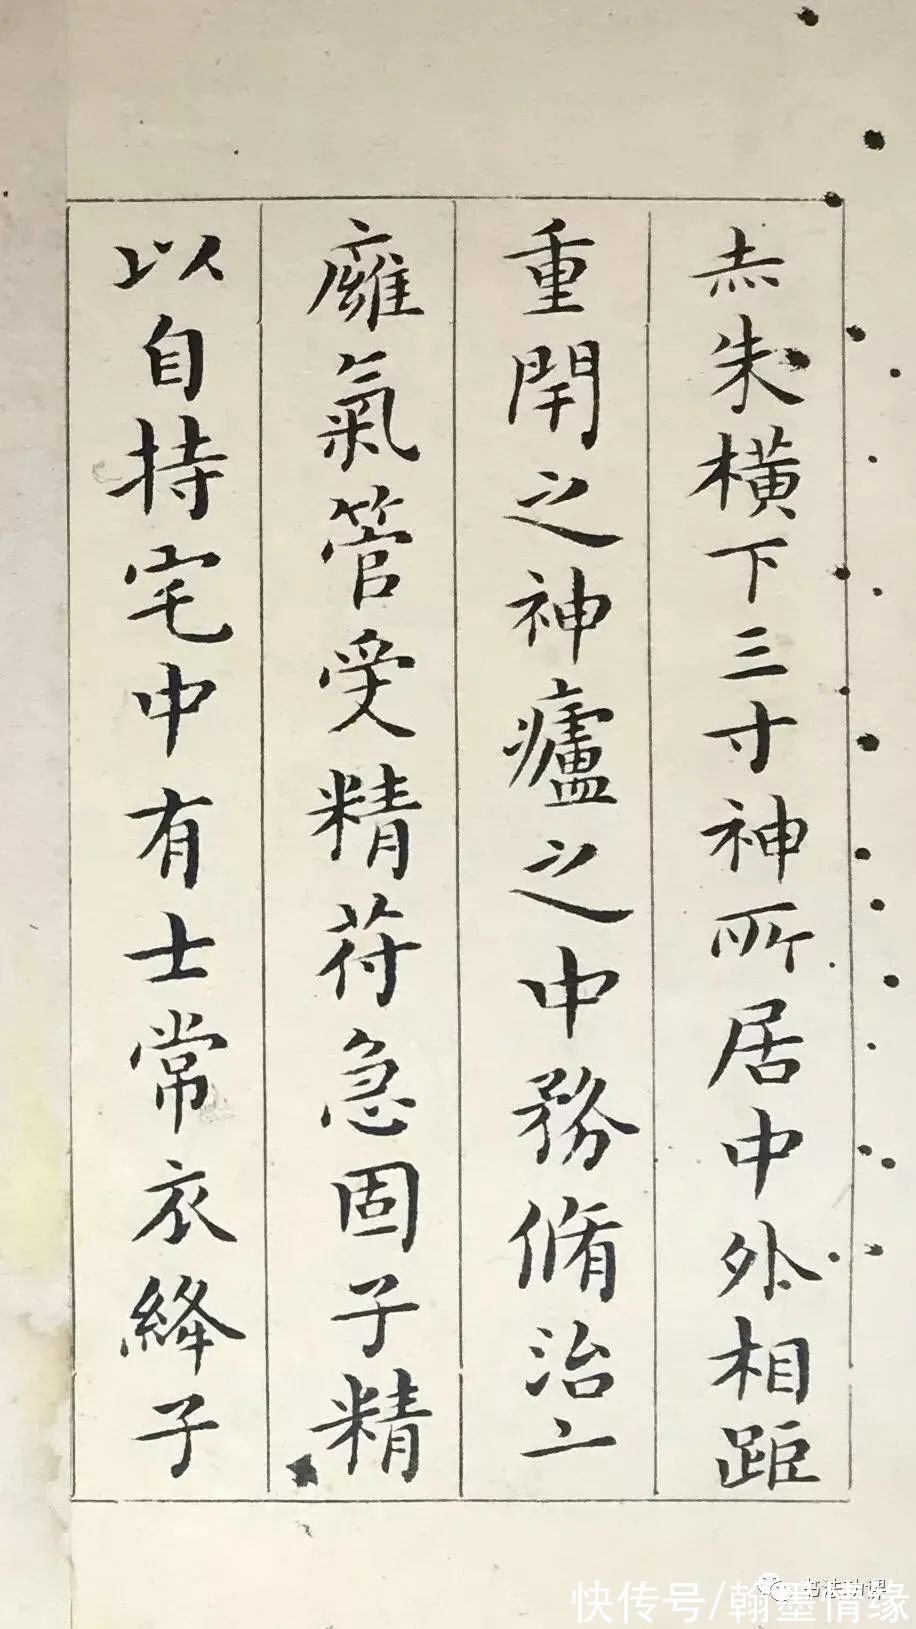 赤朱橫下三寸神所居中外相距
重閈之神廬之中務脩治二
癰氣管受精苻急固子精
以自持宅中有士常衣絳子
书法功课
快传号/翰墨情缘